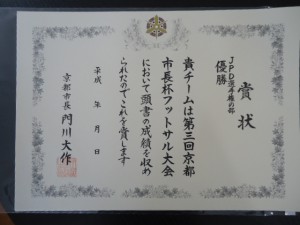 賞状
優勝
JPD選手権の部
貴チームは第三回京都
市長杯フットサル大会
において頭書の成績を収め
られたのでこれを賞します
平成　年　月　日
京都市長 門川大作